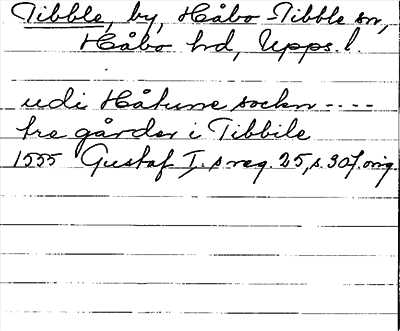 Tibble, by, Håbo-Tibble sn,
Håbo hd, Upps. l.
udi Håtune sockn ----
tre gårder i Tibbile
1555 Gustaf I.s reg. 25, s. 307. orig.